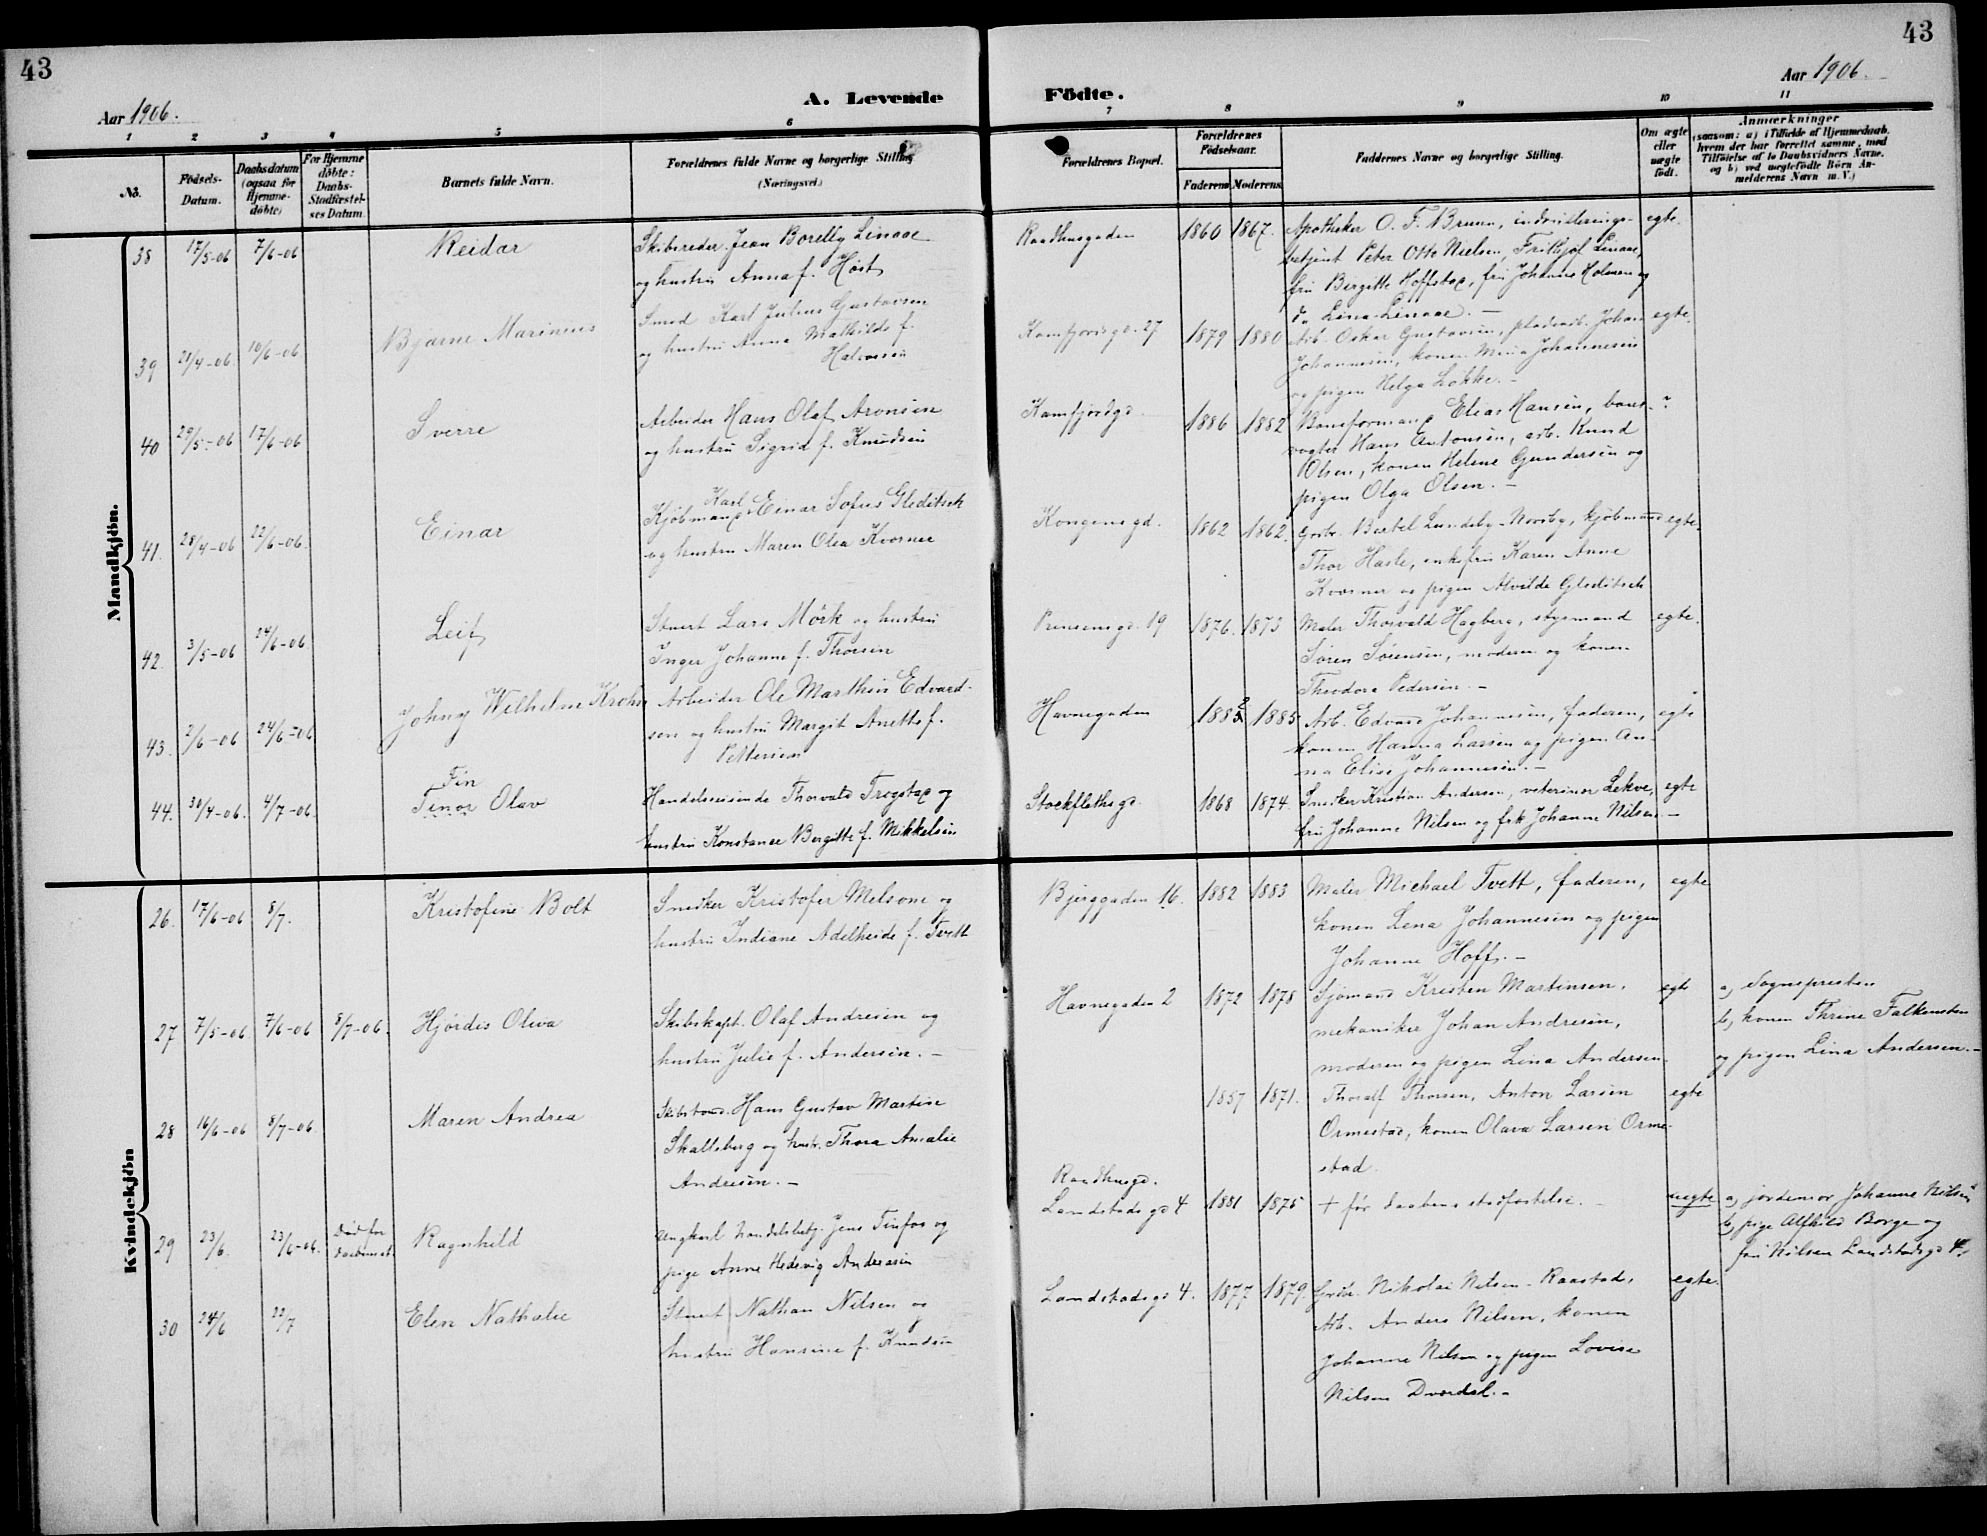 43
43
Aar 1906.
A. Levende
Födte.
Aar 1906.
1 2 3 4 5 6 7 8 9 10 11
No.
Födsels-
Datum.
Daabsdatum
(ogsaa for
Hjemme-
döbte)
For Hjemme
döbte:
Daabs-
Stadfæstel-
ses Datum
Barnets fulde Navn.
Forældrenes fulde Navne og borgerlige Stilling
(Næringsvei.)
Forældrenes Bopæl.
Forældrenes
Födselsaar.
Faderens Moderens
Faddernes Navne og borgerlige Stilling.
Om ægte
eller
uægte
födt.
Anmærkninger
(saasom: a) i Tilfælde af Hjemmedaab,
hvem der har forrettet samme, med
Tilföielse af to Daabsvidners Navne.
og b) ved uægtefödte Börn An-
melderens Navn m. V.)
Mandkjön.
38 17/5-06 7/6-06 Reidar
Skibsreder Jean Borelly Linaae
og hustru Anna f. Høst
Raadhusgaden 1860 1867.
Apotheker O. F. Bruun, indrullerings-
betjent Peter Otto Nielsen, Frithjof Linaae,
fru Birgitte Hoffstad, fru Johanne Holmen og
do Lina Linaae. -
egte.
39 21/4-06. 10/6-06 Bjarne Marinius
Smed Karl Julius Gustavsen
og hustru Anna Mathilde f.
Halvorsen
Kamfjordgd. 27 1879 1880
Arb. Oskar Gustavsen, pladearb. Johan
Johannesen, konen Mina Johannesen
og pigen Helga Løkke. -
egte.
40 29/5-06 17/6-06 Sverre
Arbeider Hans Olaf Aronsen
og hustru Sigrid f. Knudsen
Kamfjordgd. 1886 1882
Baneformand Elias Hansen, bane-
vogter Hans Antonsen, arb. Knud
Olsen, konen Helene Gundersen og
pigen Olga Olsen. -
"
41. 28/4-06 22/6-06. Einar
Kjøbmand Karl Einar Sofus Gleditsch
og hustru Maren Olea Kvorner
Kongensgd. 1862 1862.
Gbr. Bertel Lundeby-Norsby, kjøbmand
Thor Hasle, enkefru Karen Anne
Kvorner og pigen Alvilde Gleditsch
egte.
42. 3/5-06 24/6-06 Leif
Stuert Lars Mørk og hustru
Inger Johanne f. Thorsen
Prinsensgd. 19 1876. 1873
Maler Thorvald Hagberg, styrmand
Søren Sørensen, moderen og konen
Theodora Pedersen. -
egte.
43. 2/6-06 24/6-06 Johny Wilhelm Krohn
Arbeider Ole Marthin Edvard-
sen og hustru Margit Anette f.
Pettersen
Havnegaden 1882 1885
Arb. Edvard Johannesen, faderen,
konen Hanna Larsen og pigen An-
na Elise Johannesen. -
egte
44. 30/4-06. 4/7-06 Fin
Finor Olav
Handelsreisende Thorvald Trogstad og
hustru Konstance Bergitte f. Mikkelsen
Stockflethsgd. 1868 1874.
Snedker Kristian Andersen, veterinær Lekve,
fru Johanne Nilsen og frk Johanne Nilsen -
egte
Kvindekjön
26. 17/6-06 8/7. Kristofine Bolt
Snedker Kristofer Melsom og
hustru Indiane Adelheide f. Tvett
Bjerggaden 16. 1882 1883
Maler Michael Tvett, faderen,
konen Lena Johannesen og pigen
Johanne Hoff. -
egte
27 7/5-06 7/6-06 8/7-06. Hjørdis Oliva
Skibskapt. Olaf Andresen og
hustru Julie f. Andersen. -
Havnegaden 2 1872 1878
Sjømand Kristen Martinsen,
mekaniker Johan Andresen,
moderen og pigen Lina Andersen
egte
a, Sognepresten
b, konen Thrine Falkensten
og pigen Lina Andersen. -
28 16/6-06 8/7-06. Maren Andrea
Skibstømd. Hans Gustav Martin
Skallsberg og hustr. Thora Amalie
Andresen. -
Raadhusgd.
1857 1871.
Thoralf Thorsen, Anton Larsen
Ormestad, konen Olava Larsen Orme-
stad.
egte
29 23/6. 23/6-06. Død før
Ragnhild
Ungkarl handelsbetj. Jens Tinfos og
pige Anne Hedevig Andersen
Landstadsgd 4 1881 1875
+ før daabens stadfæstelse. -
uegte
a, jordemor Johanne Nilsen
b, pige Alfhild Borge og
fru Nilsen Landstadsgd 4.
30 24/6 22/7 Elen Nathalie
Stuert Nathan Nilsen og
hustru Hansine f. Knudsen
Landstadsgd 4. 1877 1879.
Gbr. Nikolai Nilsen-Raastad,
Arb. Anders Nilsen, konen
Johanne Nilsen og pigen Lovise
Nilsen Dverdal. -
egte.